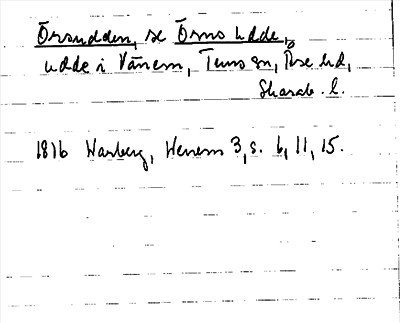 Örsudden, se Örns udde,
udde i Vänern, Tuns sn, Åse hd,
Skarab. l.
1816 Warberg, Wenern 3, s. 6, 11, 15.